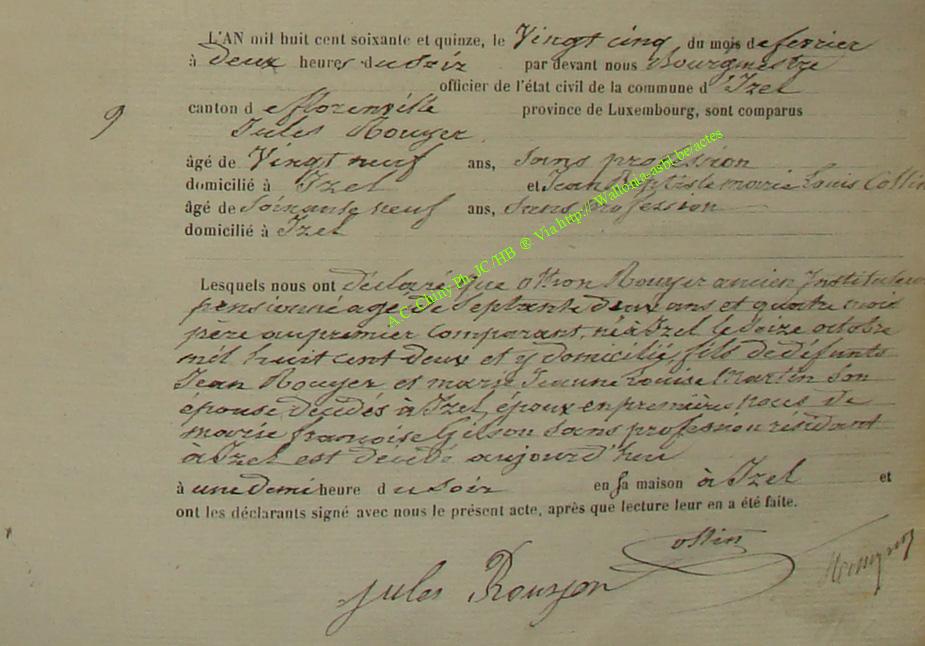 L'AN mil huit cent soixante et quinze, le Vingt cinq du mois de fevrier
à Deux heures du soir par devant nous Bourgmestre
officier de l'état civil de la commune d'Izel
canton de florenville province de Luxembourg, sont comparus
9
Jules Rouyer
âgé de Vingt neuf ans, sans profession
domicilié à Izel et Jean Baptiste marie Louis Collin
âgé de Soixante neuf ans, sans profession
domicilié à Izel
A.C. Chiny Ph. JC/HB ® Via http://Wallonia-asbl.be/actes
Lesquels nous ont déclaré que Rouyer ancien Instituteur
pensionné agé de Septante deux ans et quatre mois
père au premier comparant, né à Izel le octobre
mil huit cent deux et y domicilié, fils de défunts
Jean Rouyer et marie Jeanne Louise Martin son
épouse décidés à Izel, époux en premières noces de
marie françoise Gilson sans profession résidant
à Izel est décédé aujourd'hui
à une demi heure du soir en sa maison à Izel et
ont les déclarants signé avec nous le présent acte, après que lecture leur en a été faite.
Collin
Jules Rouyer